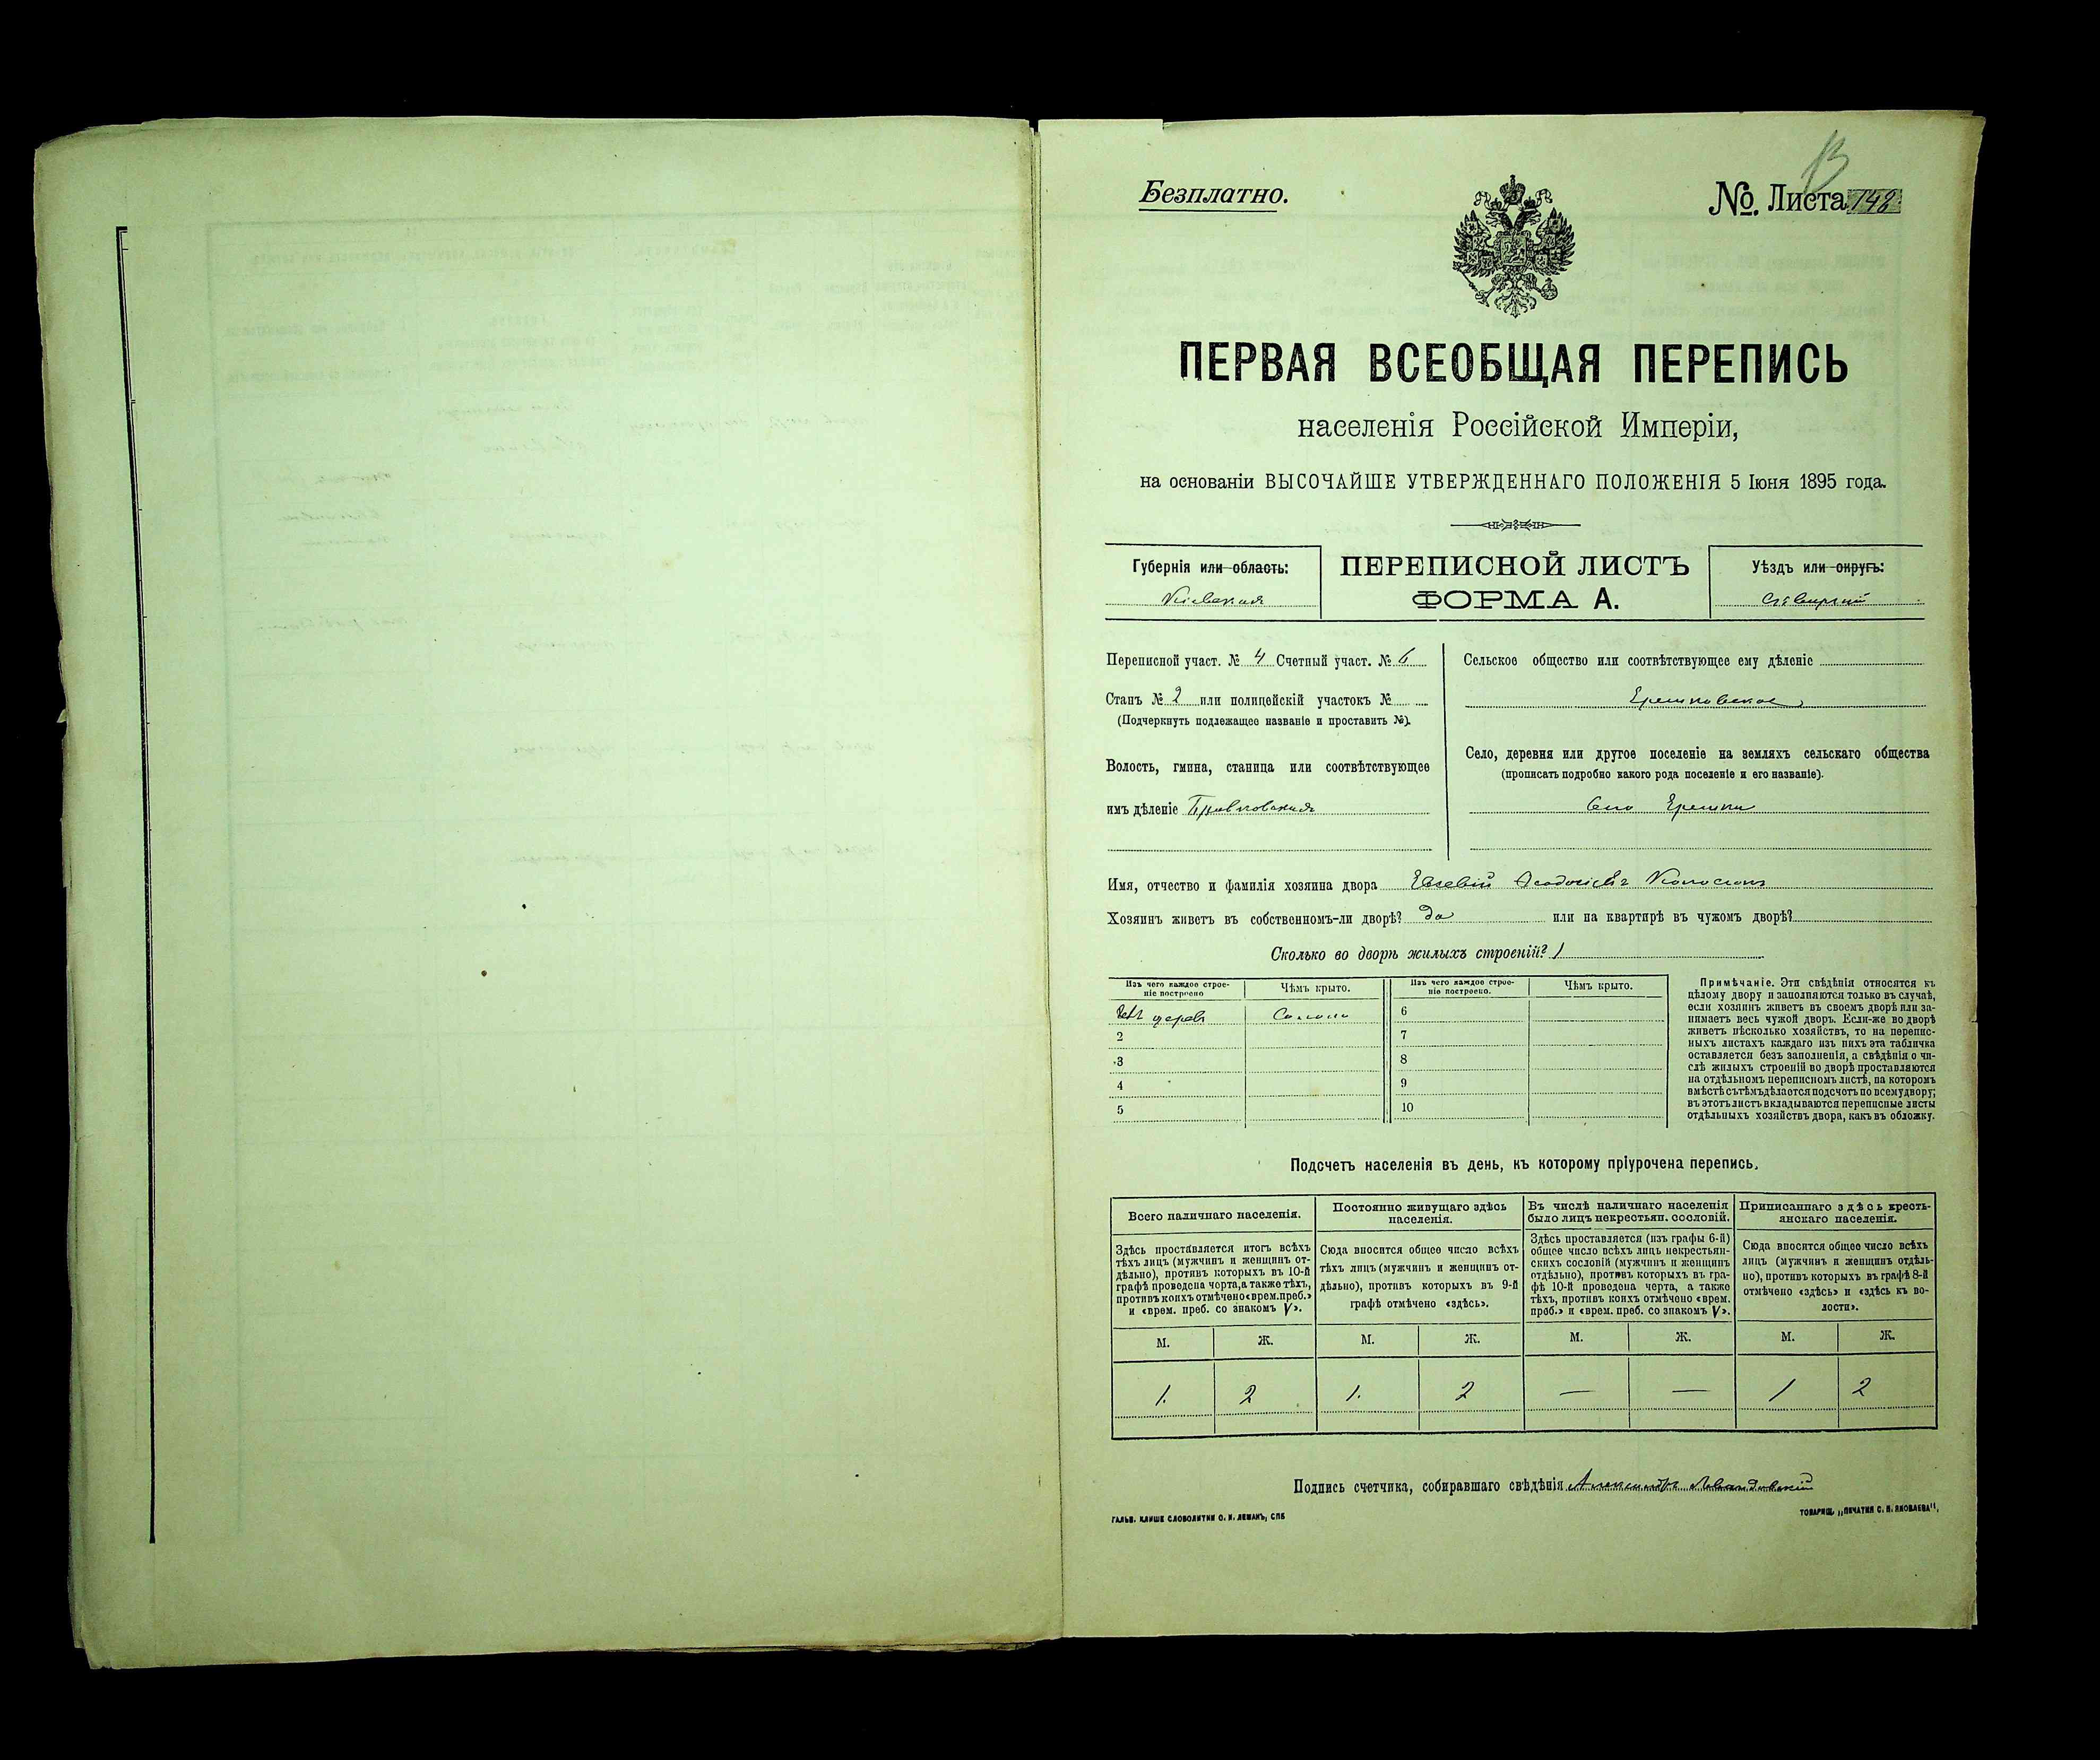 Безплатно.
№ Листа 148
13
ПЕРВАЯ ВСЕОБЩАЯ ПЕРЕПИСЬ
населенія Россійской Имперіи,
на основаніи ВЫСОЧАЙШЕ УТВЕРЖДЕННАГО ПОЛОЖЕНІЯ 5 Іюня 1895 года.
Губернія или область:
Кіевская
ПЕРЕПИСНОЙ ЛИСТЪ
ФОРМА А.
Уѣздъ или округъ:
Сквирскій
Переписной участ. № 4 Счетный участ. № 6
Станъ № 2 или полицейскій участокъ №
(Подчеркнуть подлежащее названіе и проставить №).
Волость, гмина, станица или соотвѣтствующее
имъ дѣленіе
Сельское общество или соотвѣтствующее ему дѣленіе
Ерешковское
Село, деревня или другое поселеніе на земляхъ сельскаго общества
(прописать подробно какого рода поселеніе и его названіе).
Село Ерешки
Имя, отчество и фамилія хозяина двора Евсевій
Хозяинъ живетъ въ собственномъ-ли дворѣ? да или на квартирѣ въ чужомъ дворѣ?
Сколько во дворѣ жилыхъ строеній? 1
Изъ чего каждое строе-
ніе построено
Чѣмъ крыто.
Изъ чего каждое строе-
ніе построено.
Чѣмъ крыто.
изъ дерева Солома 6
2 7
3 8
4 9
5 10
Примѣчаніе. Эти свѣдѣнія относятся къ
цѣлому двору и заполняются только въ случаѣ,
если хозяинъ живетъ въ своемъ дворѣ или за-
нимаетъ весь чужой дворъ. Если-же во дворѣ
живетъ нѣсколько хозяйствъ, то на перепис-
ныхъ листахъ каждаго изъ нихъ эта табличка
оставляется безъ заполненія, а свѣдѣнія о чи-
слѣ жилыхъ строеній во дворѣ проставляются
на отдѣльномъ переписномъ листѣ, на которомъ
вмѣстѣ съ тѣмъ дѣлается подсчетъ по всему двору;
въ этотъ листъ вкладываются переписные листы
отдѣльныхъ хозяйствъ двора, какъ въ обложку.
Подсчетъ населенія въ день, къ которому пріурочена перепись.
Всего наличнаго населенія.
Здѣсь проставляется итогъ всѣхъ
тѣхъ лицъ (мужчинъ и женщинъ от-
дѣльно), противъ которыхъ въ 10-й
графѣ проведена черта, а также тѣхъ,
противъ коихъ отмѣчено «врем. преб.»
и «врем. преб. со знакомъ V».
Постоянно живущаго здѣсь
населенія.
Сюда вносится общее число всѣхъ
тѣхъ лицъ (мужчинъ и женщинъ от-
дѣльно), противъ которыхъ въ 9-й
графѣ отмѣчено «здѣсь».
Въ числѣ наличнаго населенія
было лицъ некрестьян. сословій.
Здѣсь проставляется (изъ графы 6-й)
общее число всѣхъ лицъ некрестьян-
скихъ сословій (мужчинъ и женщинъ
отдѣльно), противъ которыхъ въ гра-
фѣ 10-й проведена черта, а также
тѣхъ, противъ коихъ отмѣчено «врем.
преб.» и «врем. преб. со знакомъ V».
Приписаннаго здѣсь кресть-
янскаго населенія.
Сюда вносится общее число всѣхъ
лицъ (мужчинъ и женщинъ отдѣль-
но), противъ которыхъ въ графѣ 8-й
отмѣчено «здѣсь» и «здѣсь къ во-
лости».
М. Ж. М. Ж. М. Ж. М. Ж.
1. 2 1. 2 — — 1 2
Подпись счетчика, собиравшаго свѣдѣнія Александръ Левандовскій
ГАЛЬВ. КЛИШЕ СЛОВОЛИТНИ О. И. ЛЕМАНЪ, СПБ
ТОВАРИЩ. „ПЕЧАТНЯ С. П. ЯКОВЛЕВА“.